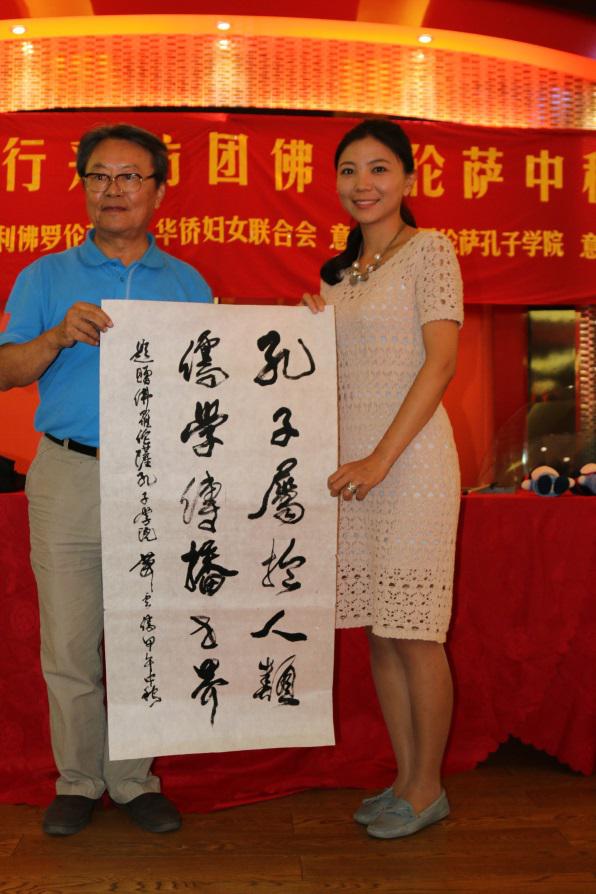 行 访团佛 伦萨中
利佛罗伦 华侨妇女联合会 意 伦萨孔子学院 意
孔子屬於人類
儒學傳播世界
題贈佛羅倫薩孔子学院 甲午中秋